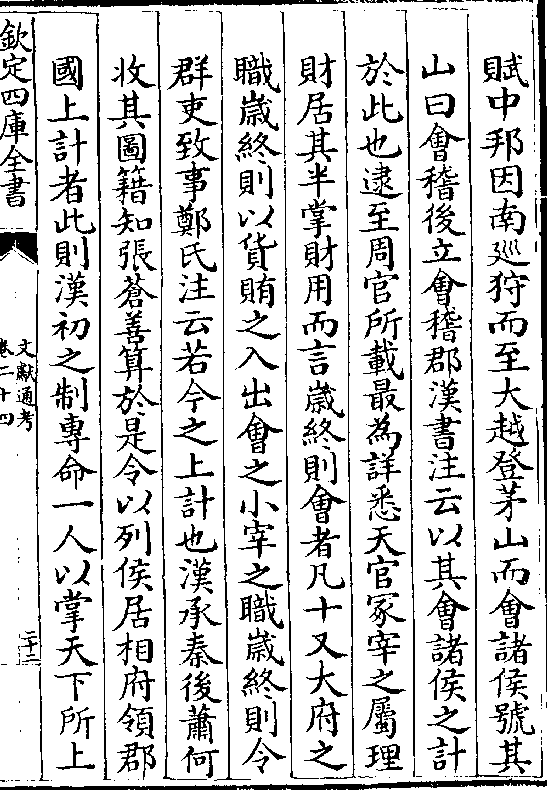 賦中邦因南廵狩而至大越登茅山而會諸侯號其
山曰會稽後立會稽郡漢書注云以其會諸侯之計
於此也逮至周官所載最為詳悉天官冢宰之屬理
財居其半掌財用而言歳終則會者凡十又大府之
職歳終則以貨賄之入出會之小宰之職歳終則令
群吏致事鄭氏注云若今之上計也漢承秦後蕭何
收其圖籍知張蒼善算於是令以列侯居相府領郡
國上計者此則漢初之制專命一人以掌天下所上
欽定四庫全書
文獻通考
卷二十四
二十二